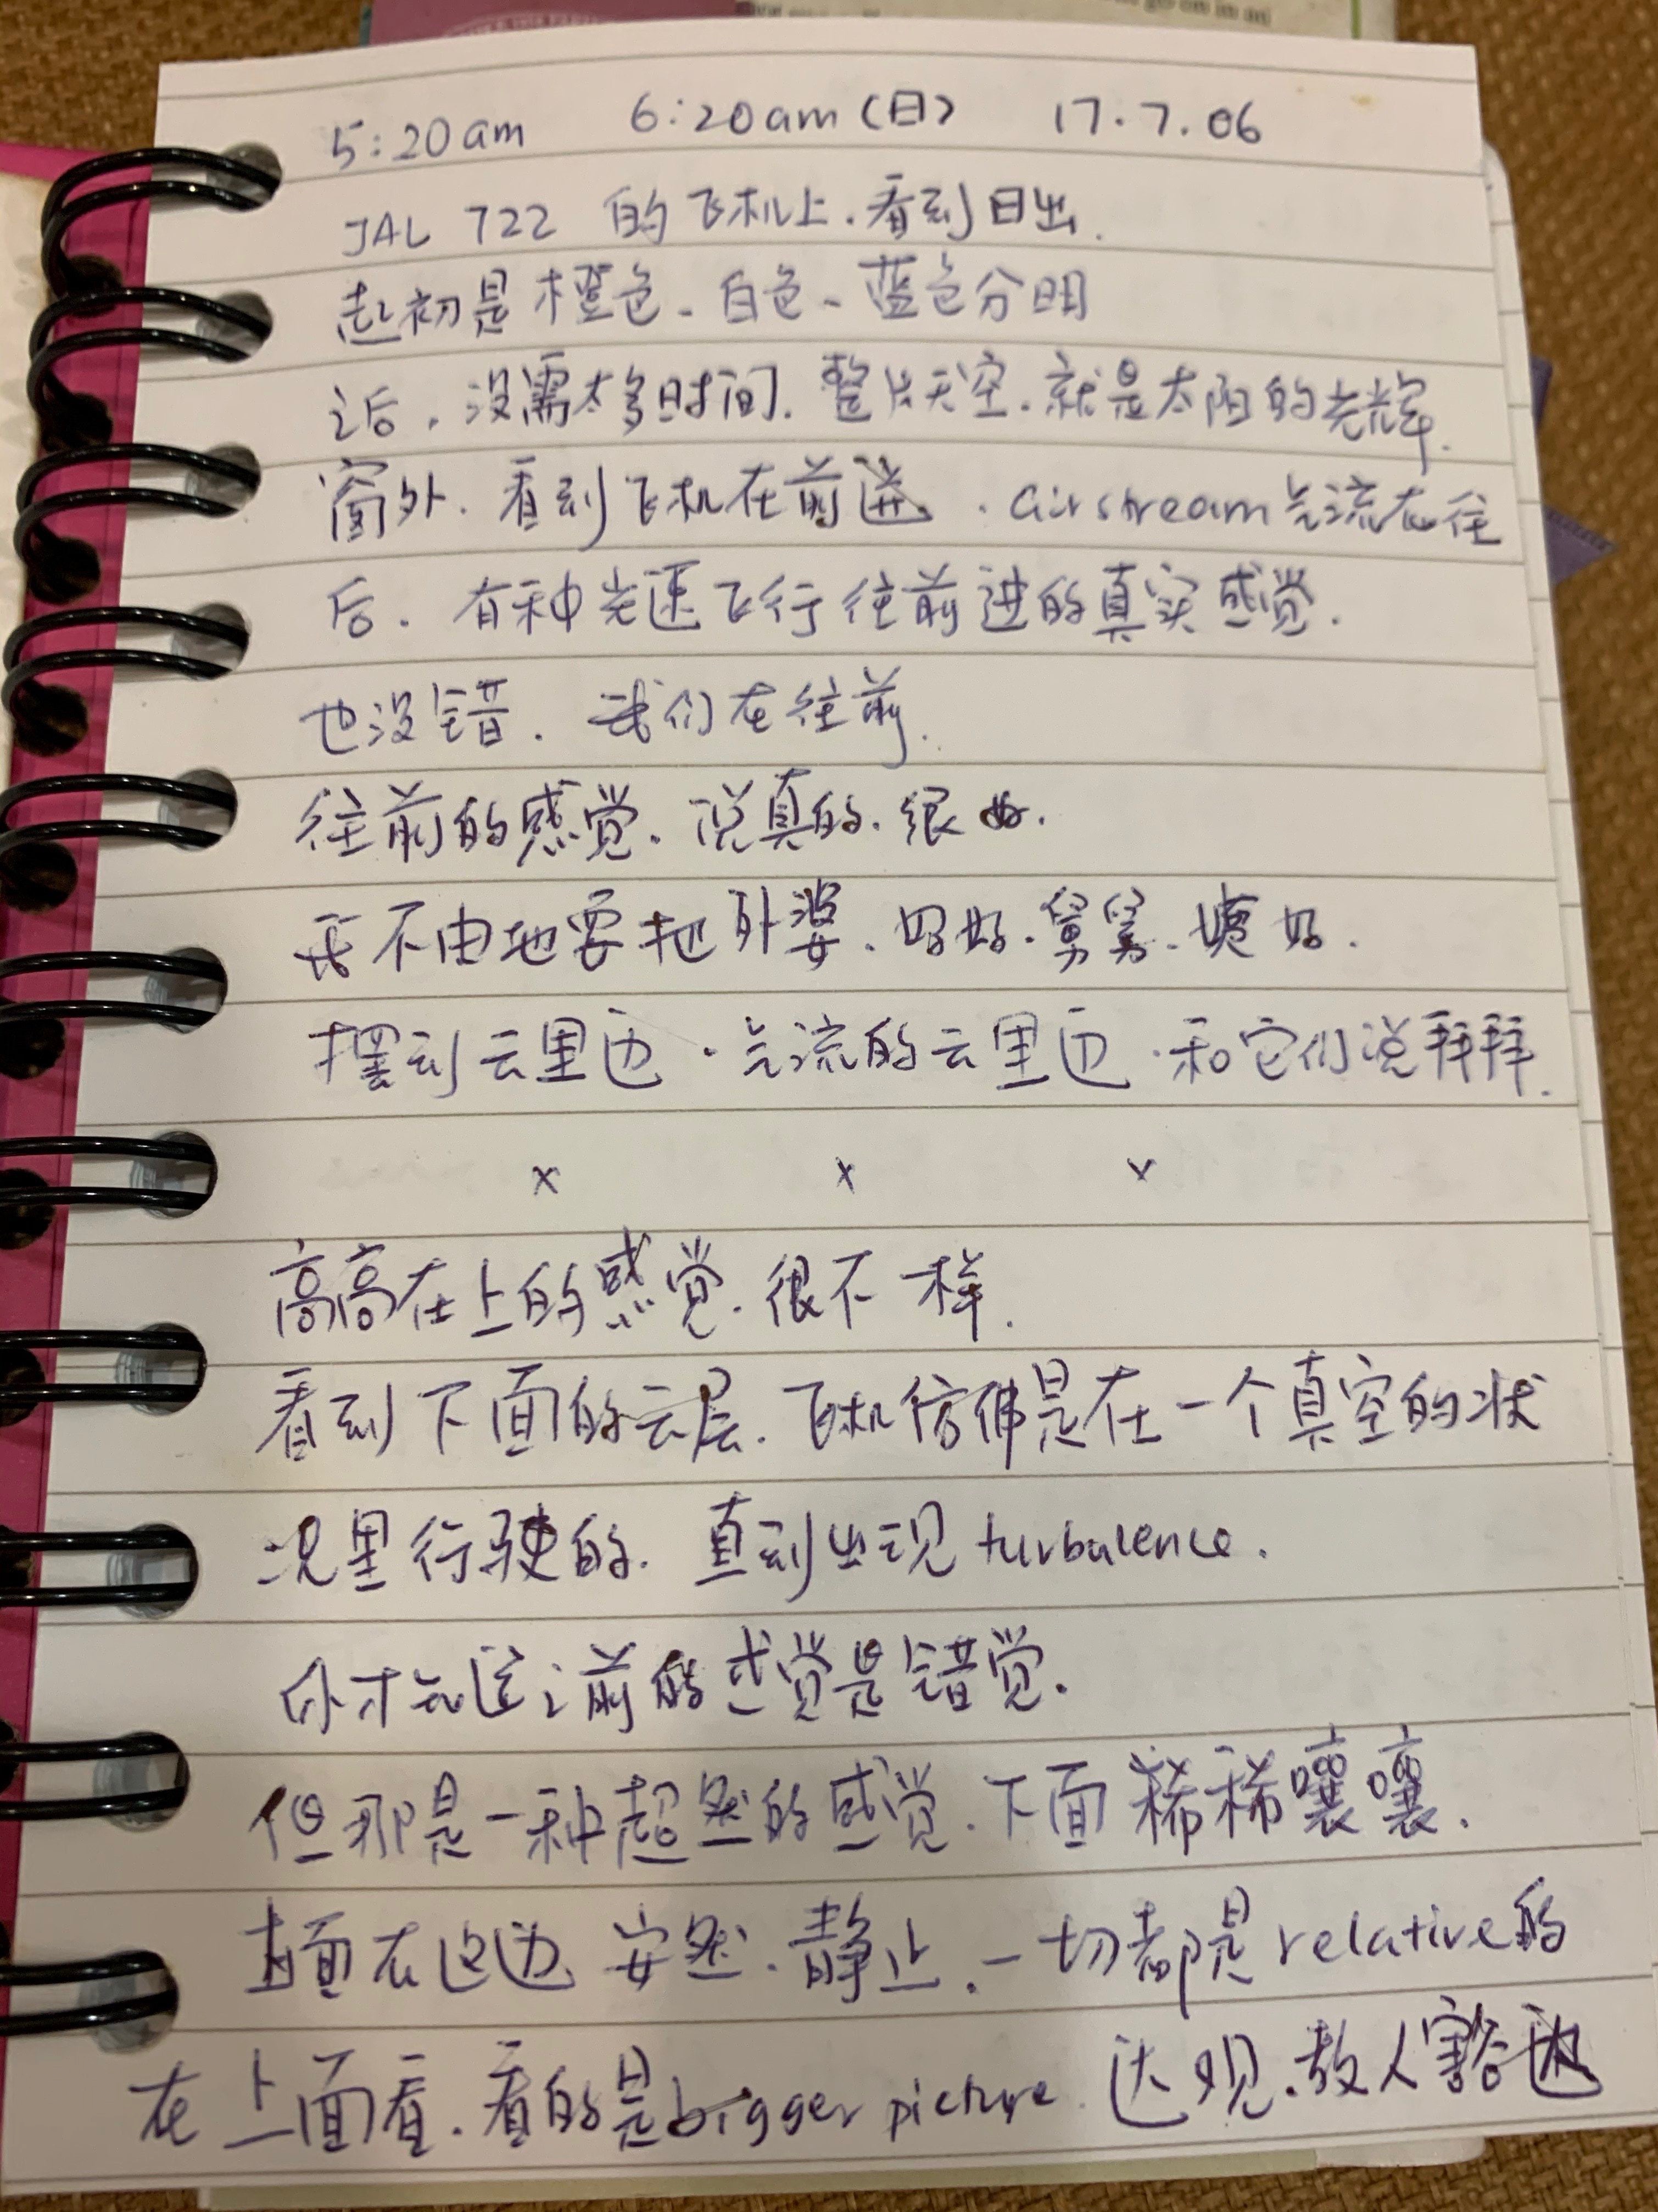 5:20am 6:20am (日) 17.7.06
JAL 722 的飞机上.看到日出.
起初是橙色、白色、蓝色分明
之后.没需太多时间.整片天空.就是太阳的光辉.
窗外.看到飞机在前进.airstream气流在往
后.有种光速飞行往前进的真实感觉.
也没错.我们在往前.
往前的感觉.说真的.很好.
我不由地要把外婆、妈妈.舅舅、姨妈.
摆到云里边.气流的云里边.和它们说拜拜.
x x x
高高在上的感觉.很不一样.
看到下面的云层.飞机仿佛是在一个真空的状
况里行驶的.直到出现turbulence.
你才知道之前的感觉是错觉.
但那是一种超然的感觉.下面稀稀嚷嚷.
上面在这边 安然.静止.一切都是relative的
在上面看.看的是bigger picture.达观.教人豁达